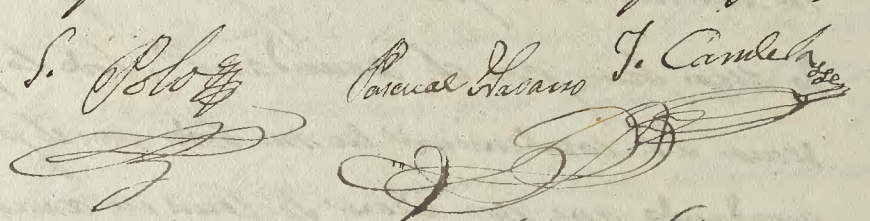 S. Polo Pascual Navarro J. Candela